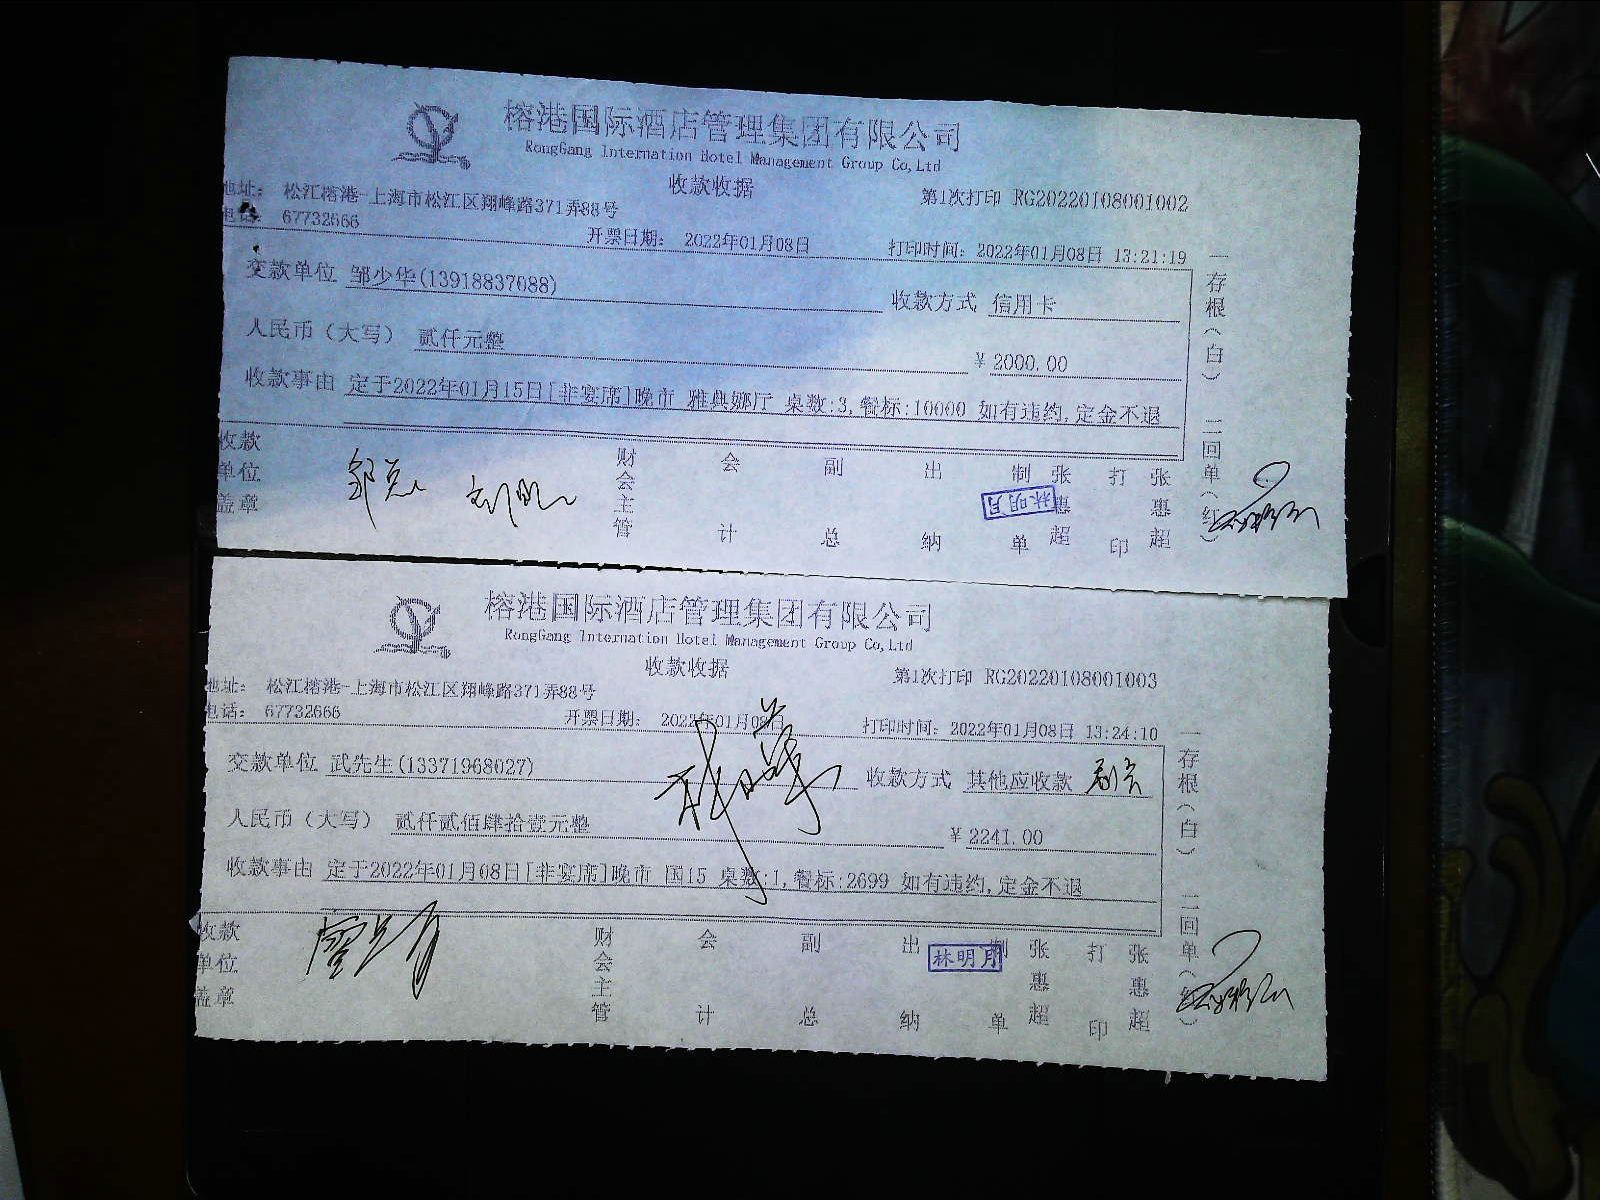 榕港国际酒店管理集团有限公司
RongGang Internation Hotel Management Group Co,Ltd
收款收据
地址： 松江榕港-上海市松江区翔峰路371弄88号
第1次打印 RG20220108001002
电话： 67732666
开票日期： 2022年01月08日
打印时间： 2022年01月08日 13:21:19
交款单位 邹少华(13918837688)
收款方式 信用卡
人民币（大写） 贰仟元整
¥2000.00
收款事由 定于2022年01月15日[非宴席]晚市 雅典娜厅 桌数:3,餐标:10000 如有违约,定金不退
一存根（白） 二回单（红）
收款单位盖章
财会主管
会计
副总
出纳
制单 张惠超
打印 张惠超
林明月
榕港国际酒店管理集团有限公司
RongGang Internation Hotel Management Group Co,Ltd
收款收据
地址： 松江榕港-上海市松江区翔峰路371弄88号
第1次打印 RG20220108001003
电话： 67732666
开票日期： 2022年01月08日
打印时间： 2022年01月08日 13:24:10
交款单位 武先生(13371968027)
收款方式 其他应收款
人民币（大写） 贰仟贰佰肆拾壹元整
¥2241.00
收款事由 定于2022年01月08日[非宴席]晚市 国15 桌数:1,餐标:2699 如有违约,定金不退
一存根（白） 二回单（红）
收款单位盖章
财会主管
会计
副总
出纳
制单 张惠超
打印 张惠超
林明月